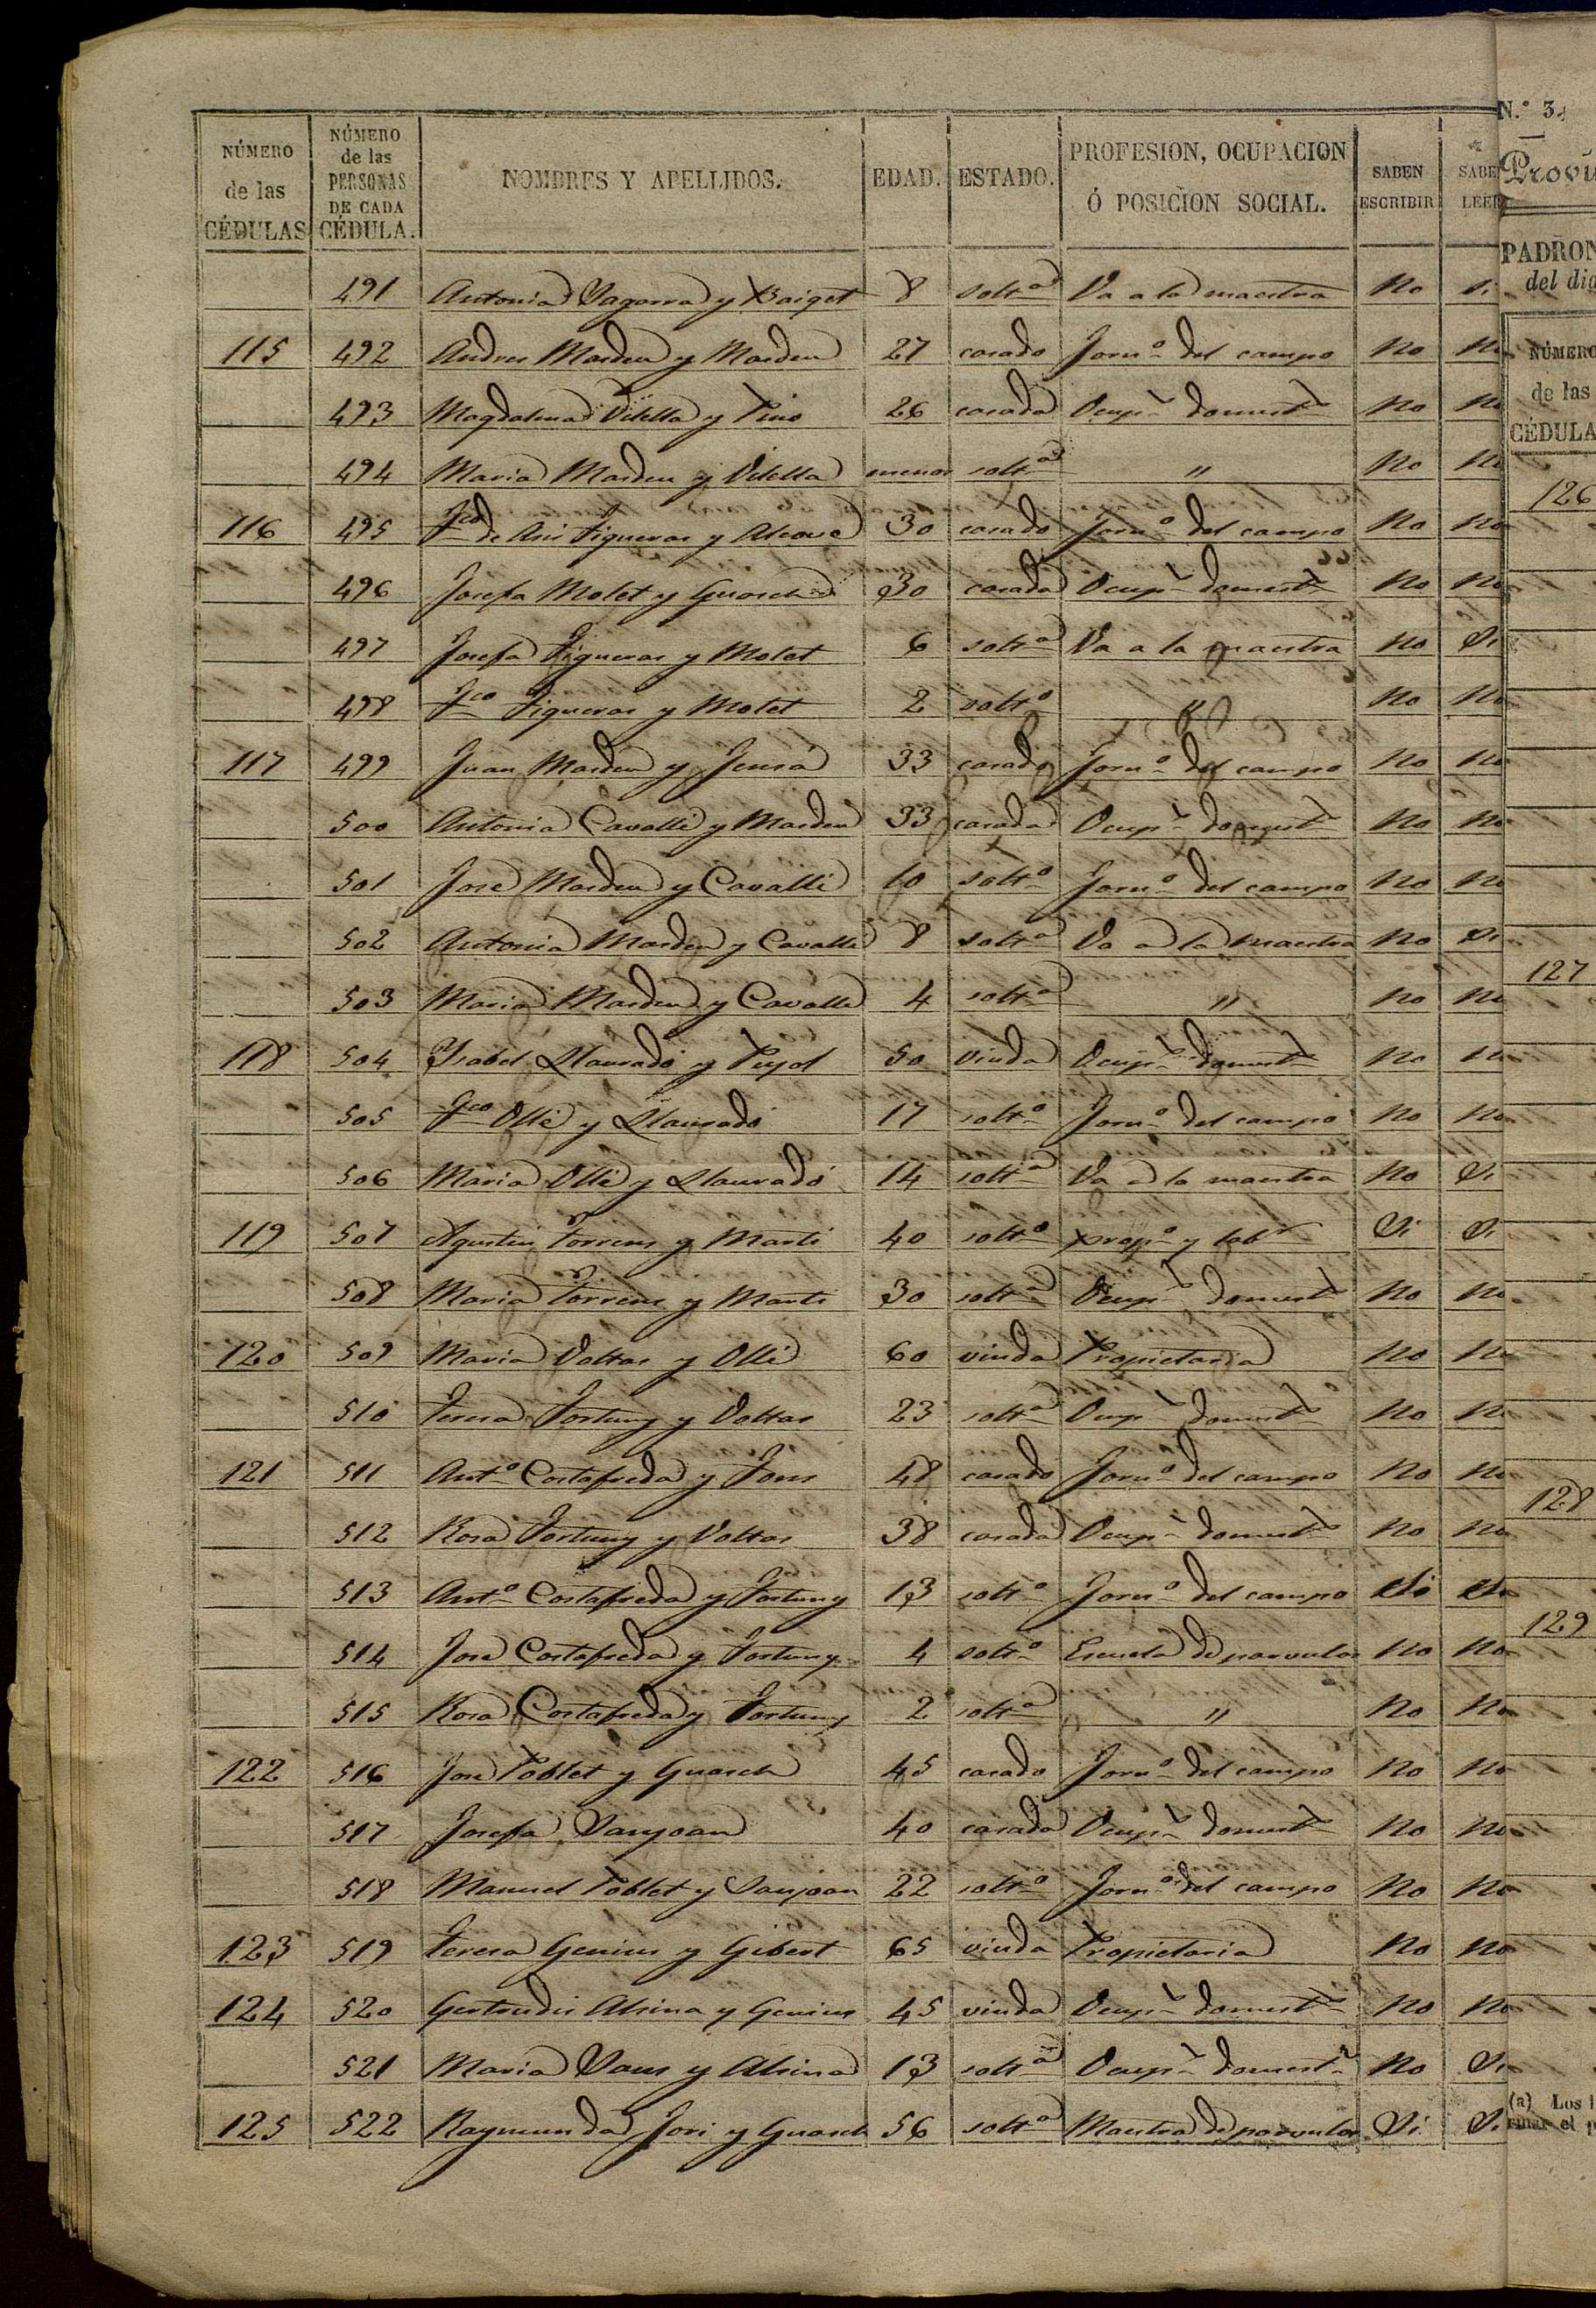 NÚMERO de las CÉDULAS NÚMERO de las PERSONAS DE CADA CÉDULA. NOMBRES Y APELLIDOS. EDAD. ESTADO. PROFESION, OCUPACION Ó POSICION SOCIAL. SABEN ESCRIBIR SABE LEER
491 Antonia Sagarra y Baiget 8 solt.ª Va a la maestra No Si
115 492 Andres Masdeu y Masdeu 27 casado Jorn.º del campo No No
493 Magdalena Vilella y Pino 26 casada Ocup.ⁿ domest.ª No No
494 Maria Masdeu y Vilella menor solt.ª " No No
116 495 Fco de Asis Figueras y 30 casado Jorn.º del campo No No
496 Josefa Molet y Guasch 30 casada Ocup.ⁿ domest.ª No No
497 Josefa Figueras y Molet 6 solt.ª Va a la maestra No Si
498 Fco Figueras y Molet 2 solt.º " No No
117 499 Juan Masdeu y 33 casado Jorn.º del campo No No
500 Antonia Cavallé y Masdeu 33 casada Ocup.ⁿ domest.ª No No
501 José Masdeu y Cavallé 10 solt.º Jorn.º del campo No No
502 Antonia Masdeu y Cavallé 8 solt.ª Va a la maestra No Si
503 Maria Masdeu y Cavallé 4 solt.ª " No No
118 504 Ysabel Llauradó y Pujol 50 viuda Ocup.ⁿ domest.ª No No
505 Fco Ollé y Llauradó 17 solt.º Jorn.º del campo No No
506 Maria Ollé y Llauradó 14 solt.ª Va a la maestra No Si
119 507 Agustin Torrens y Marti 40 solt.º Prop.º y lab.r Si Si
508 Maria Torrens y Marti 30 solt.ª Ocup.ⁿ domest.ª No No
120 509 Maria Voltas y Ollé 60 viuda Propietaria No No
510 Teresa Fortuny y Voltas 23 solt.ª Ocup.ⁿ domest.ª No No
121 511 Ant.º Costafreda y Fons 48 casado Jorn.º del campo No No
512 Rosa Fortuny y Voltas 38 casada Ocup.ⁿ domest.ª No No
513 Ant.º Costafreda y Fortuny 13 solt.º Jorn.º del campo
514 José Costafreda y Fortuny 4 solt.º Escuela de parvulos No No
515 Rosa Costafreda y Fortuny 2 solt.ª " No No
122 516 José Poblet y Guasch 45 casado Jorn.º del campo No No
517 Josefa Sanjoan 40 casada Ocup.ⁿ domest.ª No No
518 Manuel Poblet y Sanjoan 22 solt.º Jorn.º del campo No No
123 519 Teresa Genius y Gibert 65 viuda Propietaria No No
124 520 Gertrudis Alsina y Genius 45 viuda Ocup.ⁿ domest.ª No No
521 Maria Saus y Alsina 13 solt.ª Ocup.ⁿ domest.ª No Si
125 522 Raymunda Jori y Guasch 56 solt.ª Maestra de parvulos Si Si
N.º 3.
Provi
PADRON
del dia
NÚMERO
de las
CÉDULA
126
127
128
129
(a) Los
el p